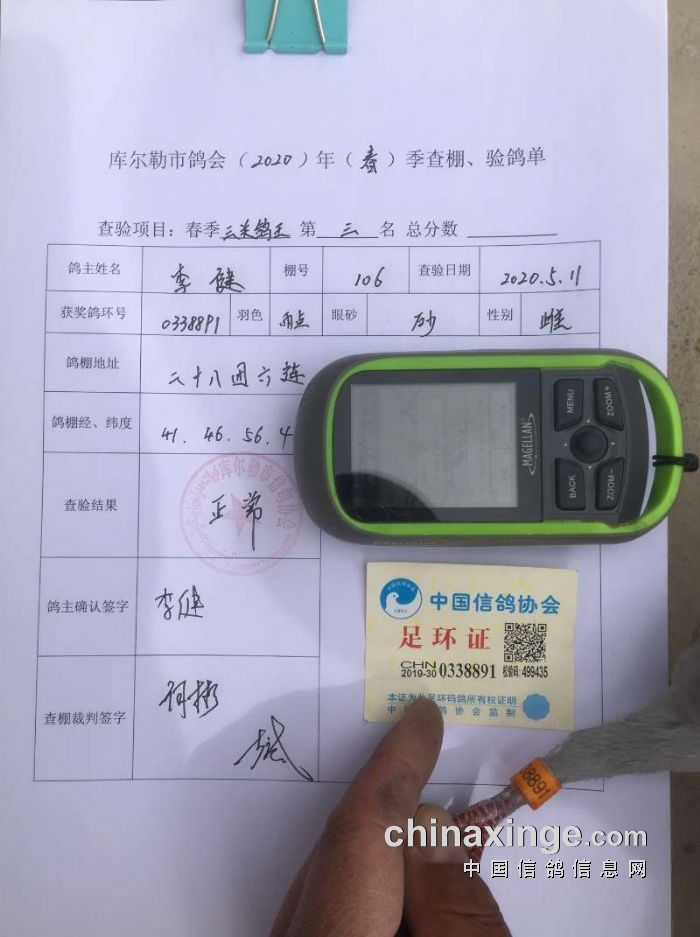 库尔勒市鸽会（2020）年（春）季查棚、验鸽单
查验项目：春季三关鸽王 第 三 名 总分数
鸽主姓名 李健 棚号 106 查验日期 2020.5.11
获奖鸽环号 0338891 羽色 雨点 眼砂 砂 性别 雌
鸽棚地址 二十八团六连
鸽棚经、纬度 41.46.56.4
查验结果 正常
库尔勒市信鸽协会
鸽主确认签字 李健
查棚裁判签字 何彬
MAGELLAN
MENU
ZOOM+
BACK
ZOOM-
中国信鸽协会
足环证
CHN
2019-30 0338891 校验码: 499435
本证为此足环码鸽所有权证明
中 信鸽协会监制
38891
chinaxinge.com
中国信鸽信息网